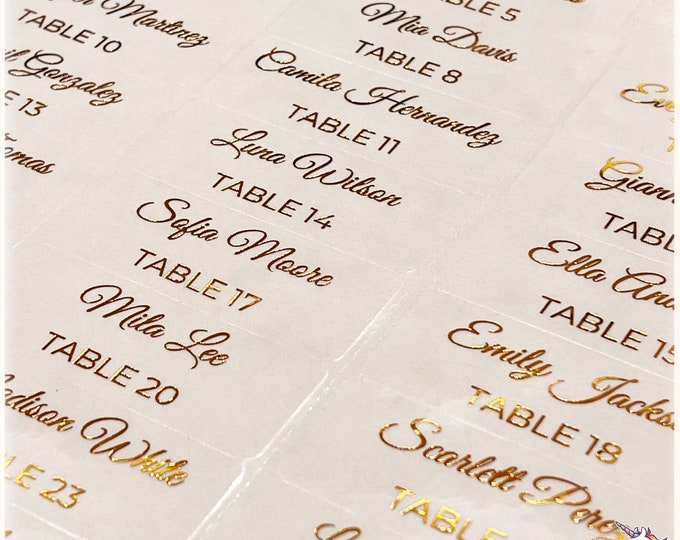 Martinez
TABLE 10
Gonzalez
13
TABLE 5
Mia Davis
TABLE 8
Camila Hernandez
TABLE 11
Luna Wilson
TABLE 14
Sofia Moore
TABLE 17
Mila Lee
TABLE 20
Madison White
TABLE 23
TABL
Ella
TABLE 15
Emily Jackso
TABLE 18
Scarlett Perez
TABLE